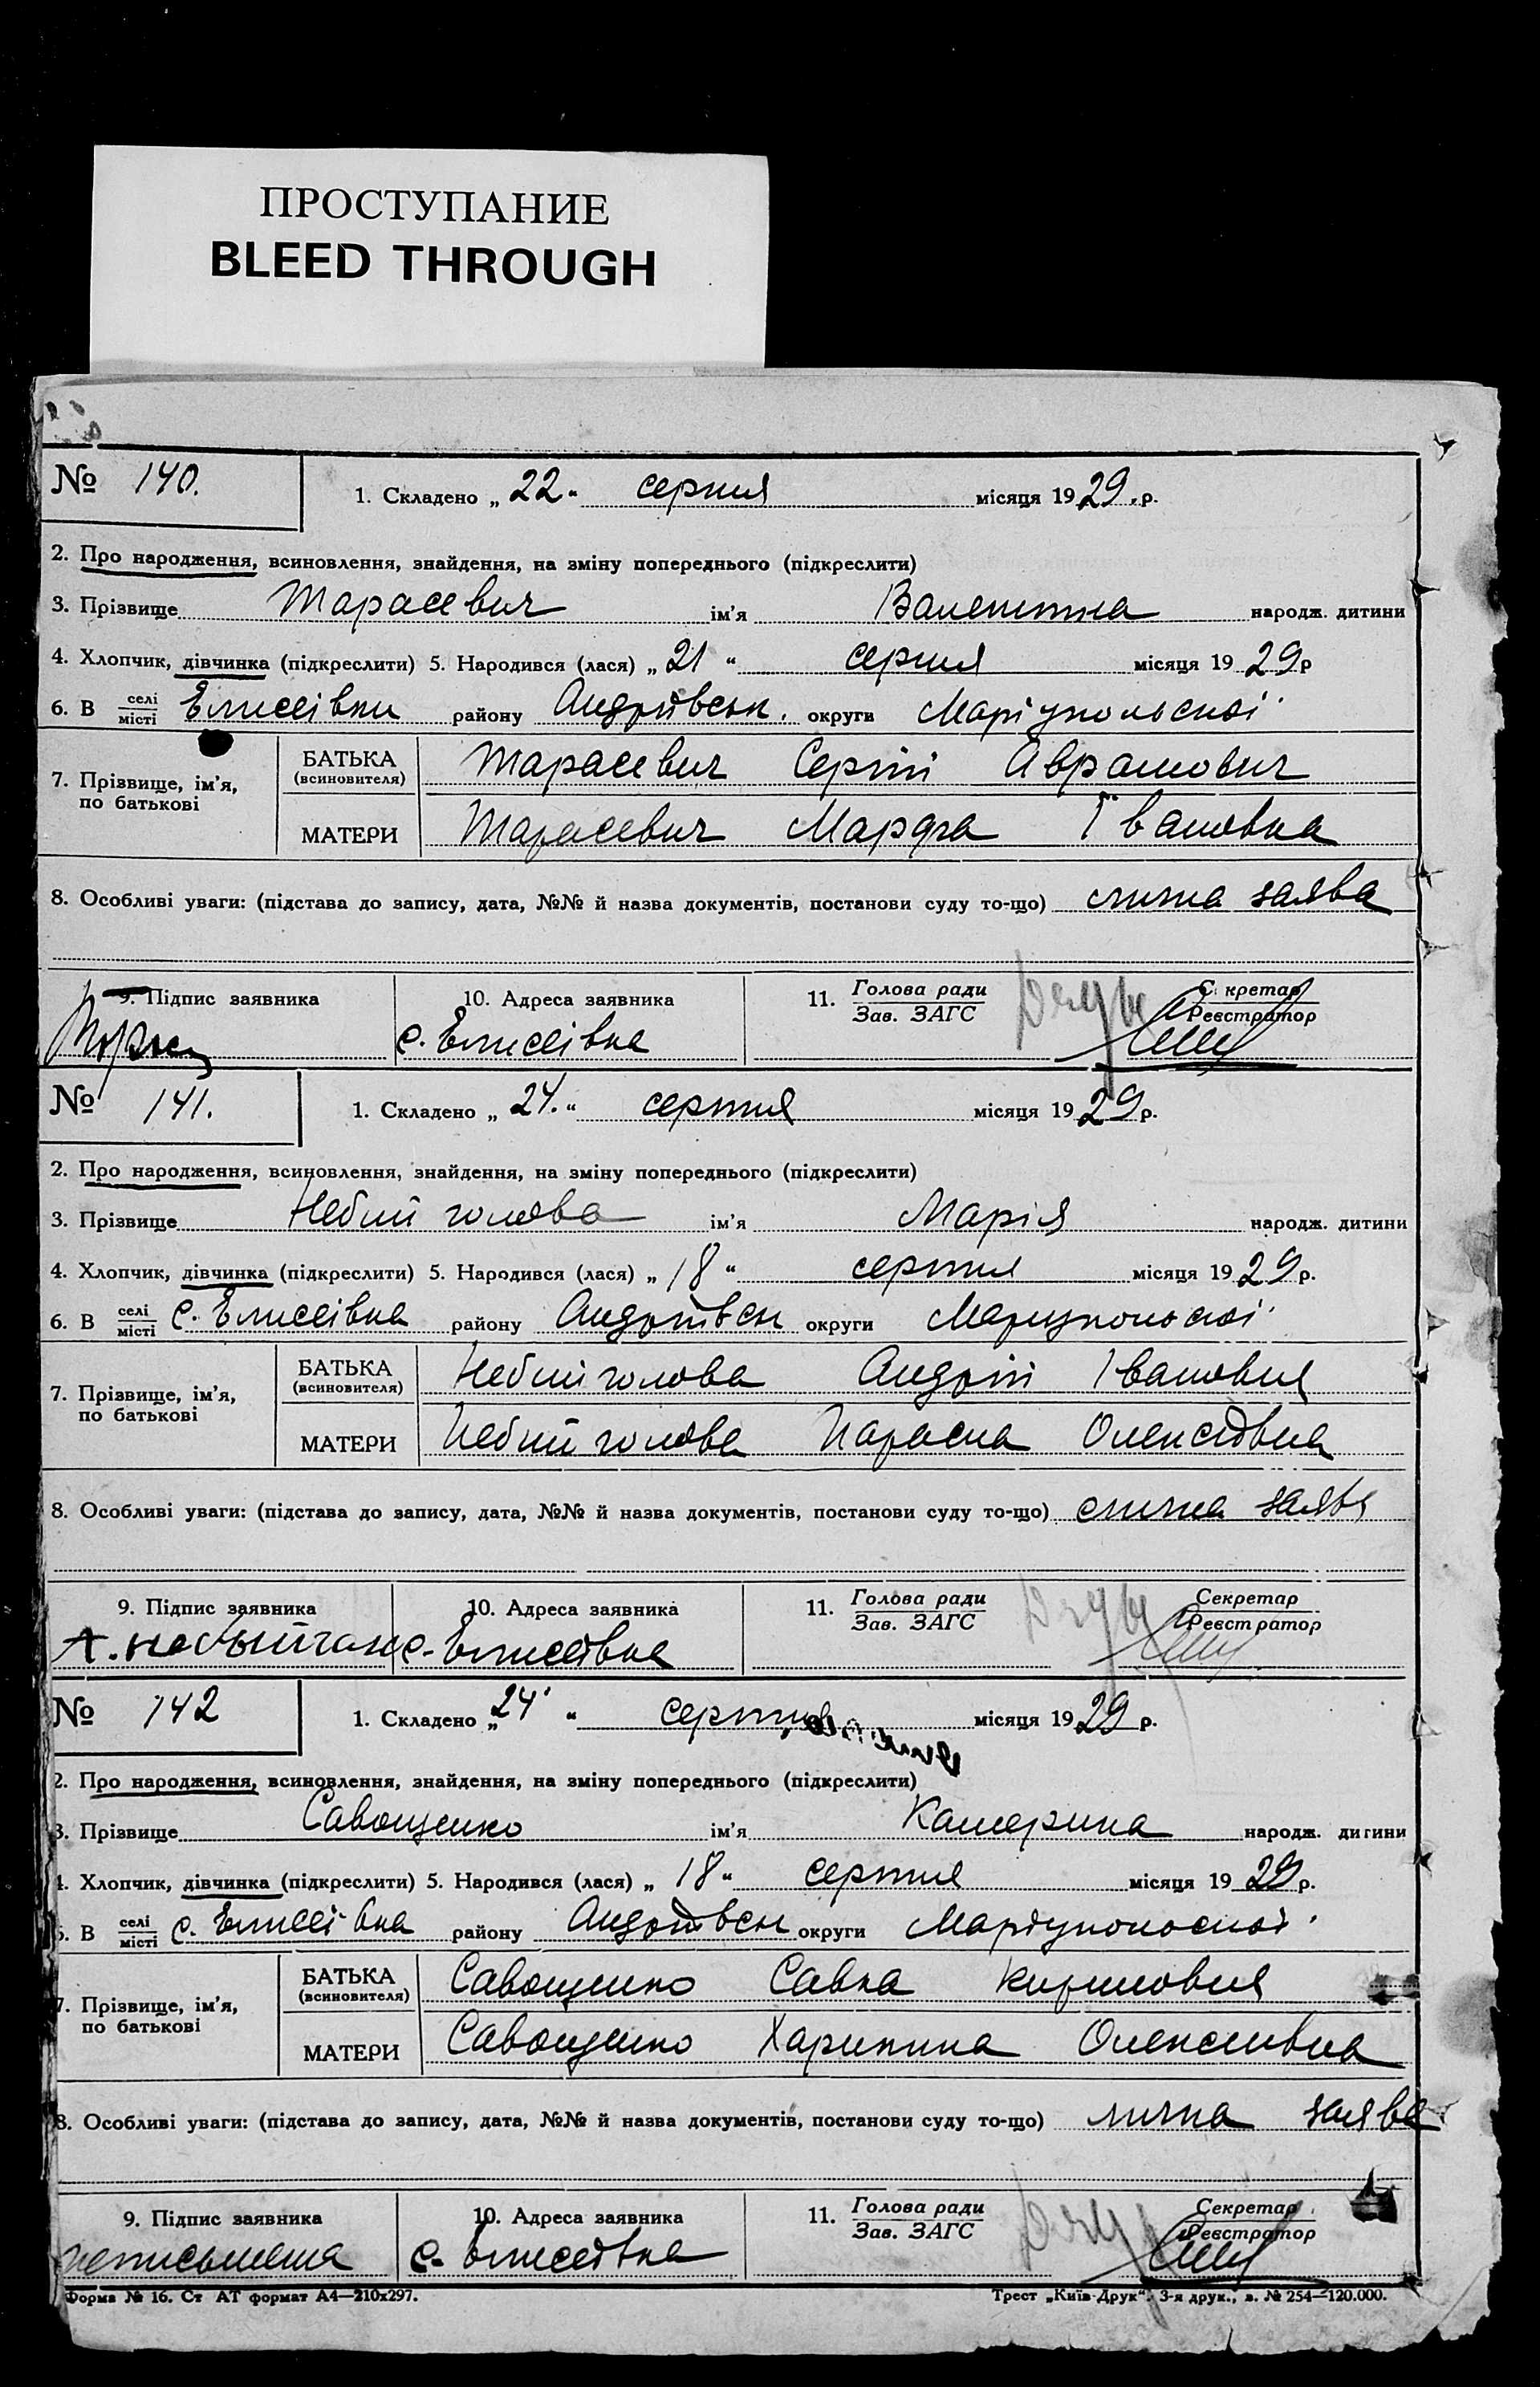 ПРОСТУПАНИЕ
BLEED THROUGH
№ 140.
1. Складено „ 22 “ серпня місяця 1929 р.
2. Про народження, всиновлення, знайдення, на зміну попереднього (підкреслити)
3. Прізвище Тарасевич ім'я Валентина народж. дитини
4. Хлопчик, дівчинка (підкреслити) 5. Народився (лася) „ 21 “ серпня місяця 1929 р
6. В селі місті Елисеівки району Андріівськ. округи Маріупольскоі
7. Прізвище, ім'я, по батькові
БАТЬКА (всиновителя) Тарасевич Сергій Аврамович
МАТЕРИ Тарасевич Марфа Івановна
8. Особливі уваги: (підстава до запису, дата, №№ й назва документів, постанови суду то-що) слична заява
9. Підпис заявника 10. Адреса заявника 11. Голова ради Зав. ЗАГС Секретар Реєстратор
с. Елисеівка
№ 141.
1. Складено „ 24. “ серпня місяця 1929 р.
2. Про народження, всиновлення, знайдення, на зміну попереднього (підкреслити)
3. Прізвище Небийголова ім'я Марія народж. дитини
4. Хлопчик, дівчинка (підкреслити) 5. Народився (лася) „ 18 “ серпня місяця 1929 р.
6. В селі місті с. Елисеівка району Андріівськ округи Маріупольскоі
7. Прізвище, ім'я, по батькові
БАТЬКА (всиновителя) Небийголова Андрій Івановия
МАТЕРИ Небийголова Параска Олексіівна
8. Особливі уваги: (підстава до запису, дата, №№ й назва документів, постанови суду то-що) слична заява
9. Підпис заявника 10. Адреса заявника 11. Голова ради Зав. ЗАГС Секретар Реєстратор
с. Елисеівка
№ 142
1. Складено „ 24 “ серпня місяця 1929 р.
2. Про народження, всиновлення, знайдення, на зміну попереднього (підкреслити)
3. Прізвище Савощенко ім'я Катерина народж. дитини
4. Хлопчик, дівчинка (підкреслити) 5. Народився (лася) „ 18 “ серпня місяця 1929 р.
6. В селі місті с. Елисеівка району Андріівськ округи Маріупольскоі
7. Прізвище, ім'я, по батькові
БАТЬКА (всиновителя) Савощенко Савка Кириловия
МАТЕРИ Савощенко Харитина Олексіивна
8. Особливі уваги: (підстава до запису, дата, №№ й назва документів, постанови суду то-що) лична заява
9. Підпис заявника 10. Адреса заявника 11. Голова ради Зав. ЗАГС Секретар Реєстратор
неписьмена с. Елисеівка
Форма № 16. Ст АТ формат А4—210х297. Трест „Київ-Друк“. 3-я друк., з. № 254—120.000.